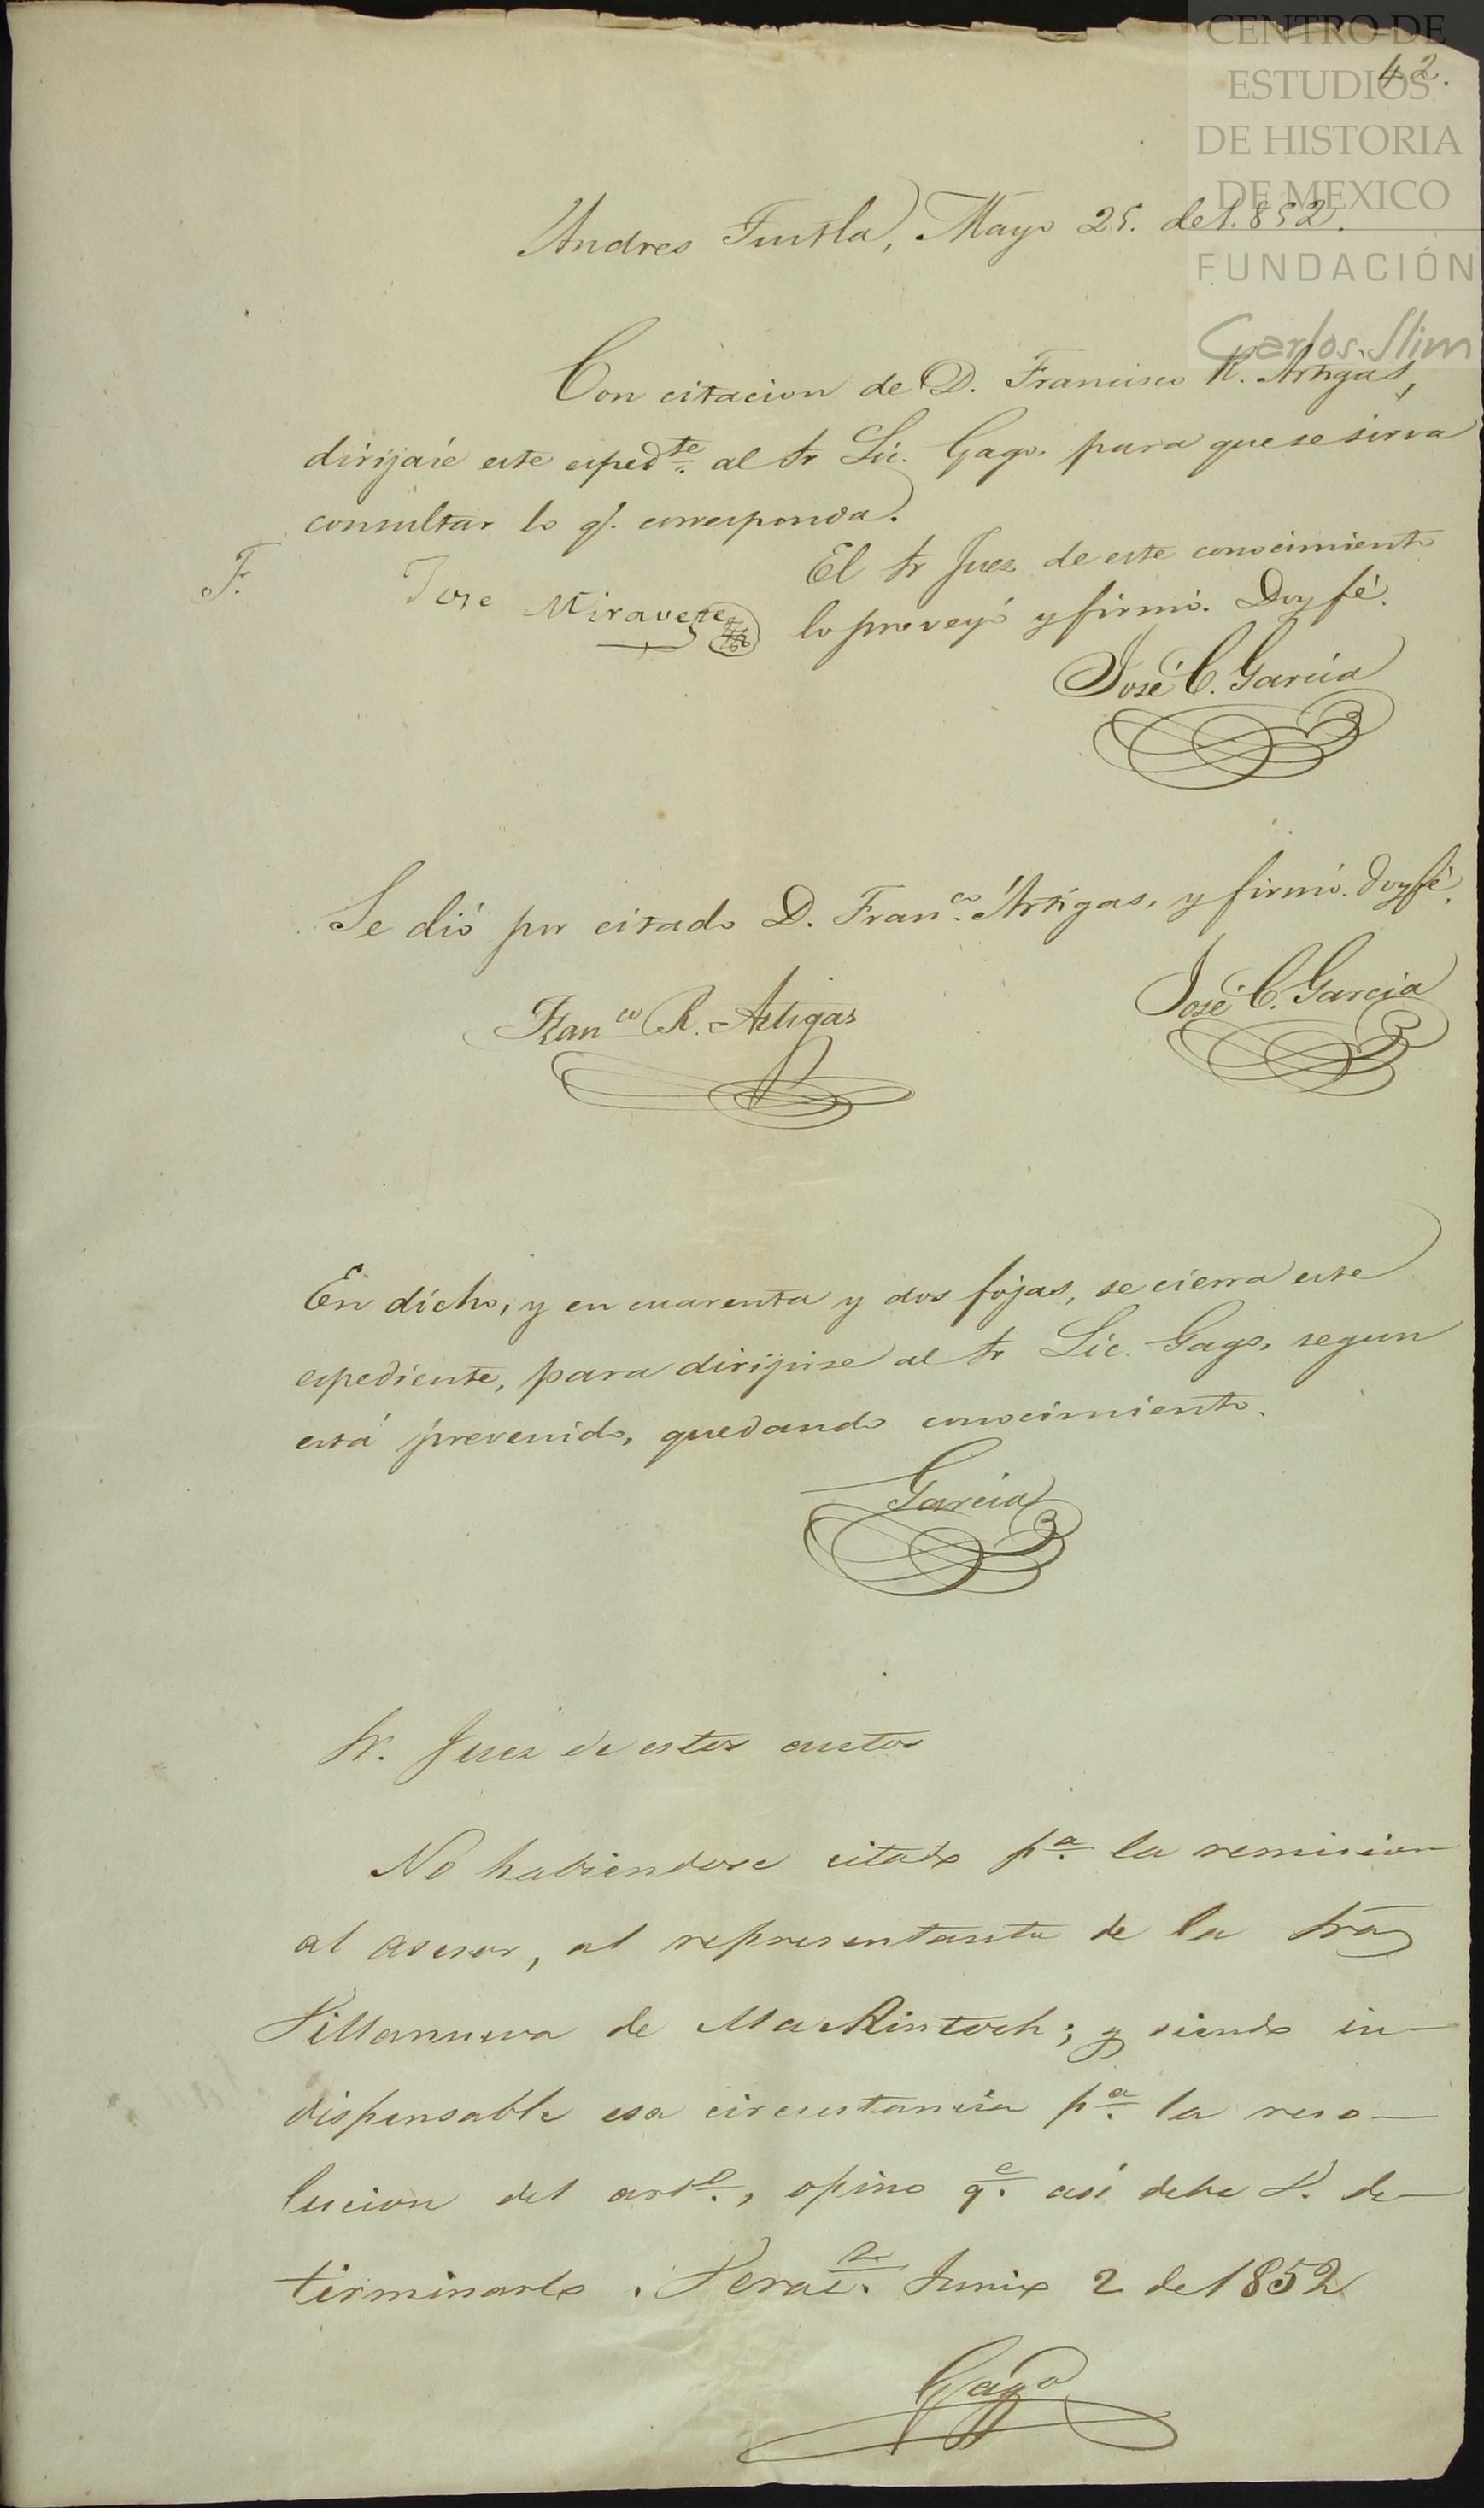 CENTRO DE
ESTUDIOS
DE HISTORIA
DE MEXICO
FUNDACIÓN
Carlos Slim
42.
Andres Tuxtla, Mayo 25. de 1.852.
Con citacion de D. Francisco R. Artigas,
dirijase este esped.te al Sr Lic. Gago, para que se sirva
consultar lo q. corresponda.
El Sr Juez de este conocimiento
F. Jose Miravete
lo proveyó y firmó. Doy fé.
José C. García
Se dió por citado D. Fran.co Artigas, y firmó. Doy fé.
Fran.co R. Artigas
José C. Garcia
En dicho, y en cuarenta y dos fojas, se cierra este
espediente, para dirijirse al Sr Lic. Gago, segun
está prevenido, quedando conocimiento.
García
Sr. Juez de estos autos
No habiendose citado p.a la remision
al asesor, al representante de la Sra
Villanueva de MacKintosh; y siendo in-
dispensable esa circustancia p.a la reso-
lucion del art.o, opino q.e así debe V. de-
terminarlo. Verac.z Junio 2 de 1852
Gago